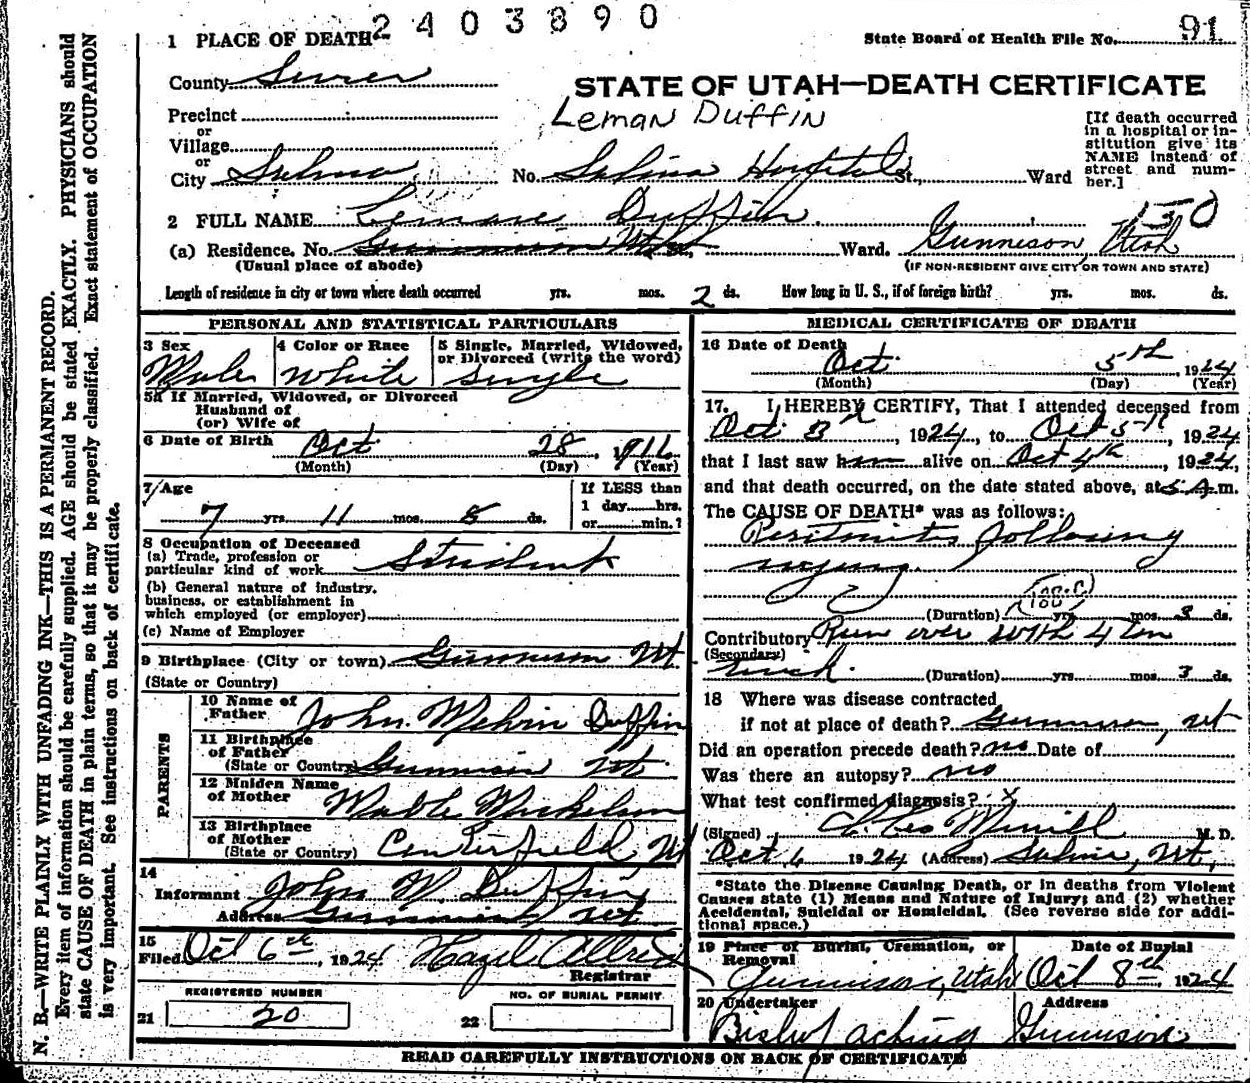 2403890
1 PLACE OF DEATH
State Board of Health File No. 91
County Sevier
STATE OF UTAH—DEATH CERTIFICATE
Leman Duffin
Precinct
or
Village
or
City Salina
No. Salina Hospital St., Ward
[If death occurred in a hospital or institution give its NAME instead of street and number.]
2 FULL NAME Leman Duffin
150
(a) Residence. No. Gunnison Utah St., Ward. Gunnison, Utah
(Usual place of abode) (IF NON-RESIDENT GIVE CITY OR TOWN AND STATE)
Length of residence in city or town where death occurred yrs. mos. 2 ds. How long in U. S., if of foreign birth? yrs. mos. ds.
PERSONAL AND STATISTICAL PARTICULARS
3 Sex Male
4 Color or Race White
5 Single, Married, Widowed, or Divorced (write the word) Single
5a If Married, Widowed, or Divorced
Husband of
(or) Wife of
6 Date of Birth Oct 28, 1916
(Month) (Day) (Year)
7 Age
7 yrs. 11 mos. 8 ds.
If LESS than
1 day hrs.
or min.?
8 Occupation of Deceased
(a) Trade, profession or
particular kind of work Student
(b) General nature of industry,
business, or establishment in
which employed (or employer)
(c) Name of Employer
9 Birthplace (City or town) Gunnison Ut
(State or Country)
PARENTS
10 Name of Father John Melvin Duffin
11 Birthplace of Father (State or Country) Gunnison Ut.
12 Maiden Name of Mother Mable Mickelsen
13 Birthplace of Mother (State or Country) Centerfield, Ut
14
Informant John M. Duffin
Address Gunnison, Ut
15
Filed Oct 6th, 1924 Hazel Allred
Registrar
REGISTERED NUMBER
21 20
NO. OF BURIAL PERMIT
22
MEDICAL CERTIFICATE OF DEATH
16 Date of Death
Oct. 5th, 1924
(Month) (Day) (Year)
17. I HEREBY CERTIFY, That I attended deceased from
Oct 3rd, 1924, to Oct 5th, 1924
that I last saw him alive on Oct 4th, 1924,
and that death occurred, on the date stated above, at 5 A.m.
The CAUSE OF DEATH* was as follows:
Peritonitis following
injury.
(Duration) yrs. mos. 3 ds.
Contributory Run over with 4 ton
(Secondary)
truck. (Duration) yrs. mos. 3 ds.
18 Where was disease contracted
if not at place of death? Gunnison, Ut
Did an operation precede death? no Date of
Was there an autopsy? no
What test confirmed diagnosis? x
(Signed) Merrill M. D.
Oct 6 1924 (Address) Salina, Ut.
*State the Disease Causing Death, or in deaths from Violent
Causes state (1) Means and Nature of Injury; and (2) whether
Accidental, Suicidal or Homicidal. (See reverse side for additional space.)
19 Place of Burial, Cremation, or Removal
Gunnison, Utah
Date of Burial
Oct 8th 1924
20 Undertaker
Bishop acting
Address
Gunnison
READ CAREFULLY INSTRUCTIONS ON BACK OF CERTIFICATE
N. B.—WRITE PLAINLY WITH UNFADING INK—THIS IS A PERMANENT RECORD.
Every item of information should be carefully supplied. AGE should be stated EXACTLY. PHYSICIANS should
state CAUSE OF DEATH in plain terms, so that it may be properly classified. Exact statement of OCCUPATION
is very important. See instructions on back of certificate.